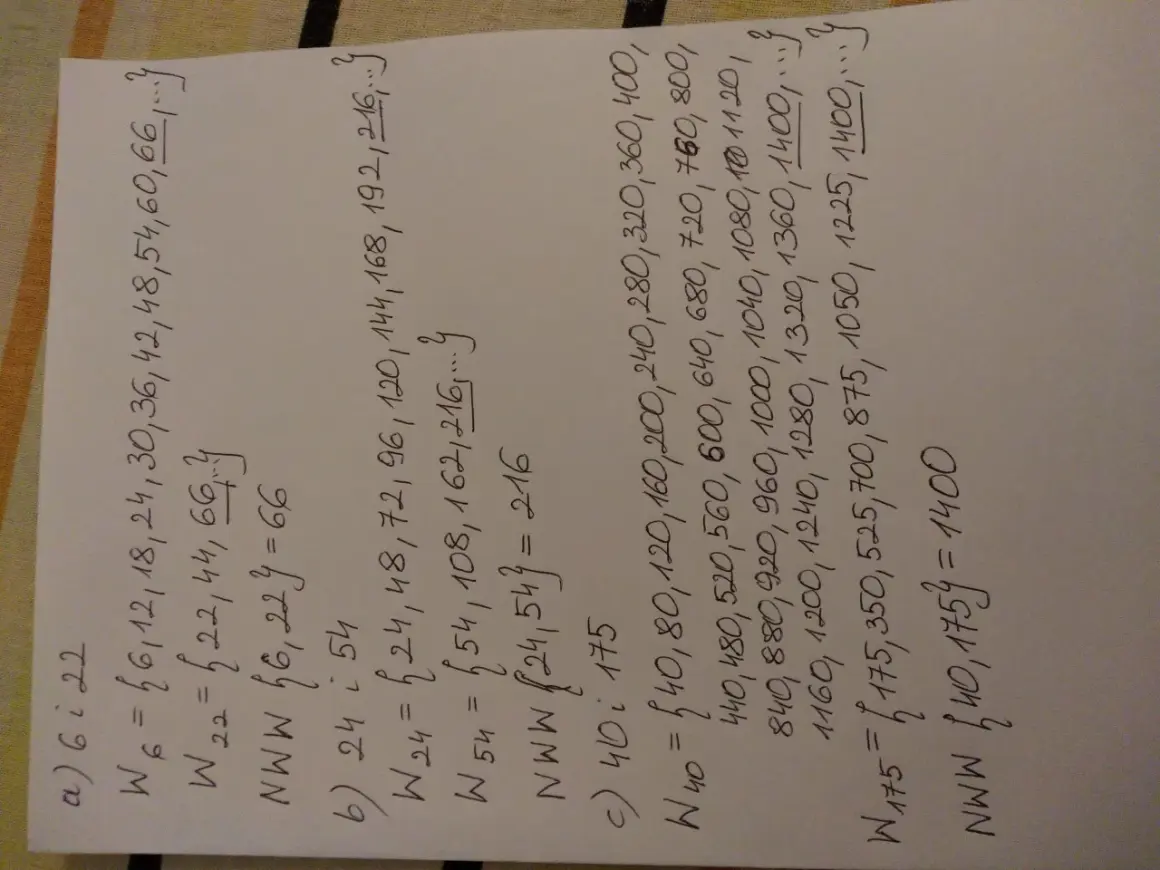 a) 6 i 22
W₆ = {6, 12, 18, 24, 30, 36, 42, 48, 54, 60, 66, ...}
W₂₂ = {22, 44, 66, ...}
NWW {6, 22} = 66
b) 24 i 54
W₂₄ = {24, 48, 72, 96, 120, 144, 168, 192, 216, ...}
W₅₄ = {54, 108, 162, 216, ...}
NWW {24, 54} = 216
c) 40 i 175
W₄₀ = {40, 80, 120, 160, 200, 240, 280, 320, 360, 400,
440, 480, 520, 560, 600, 640, 680, 720, 760, 800,
840, 880, 920, 960, 1000, 1040, 1080, 1120,
1160, 1200, 1240, 1280, 1320, 1360, 1400, ...}
W₁₇₅ = {175, 350, 525, 700, 875, 1050, 1225, 1400, ...}
NWW {40, 175} = 1400